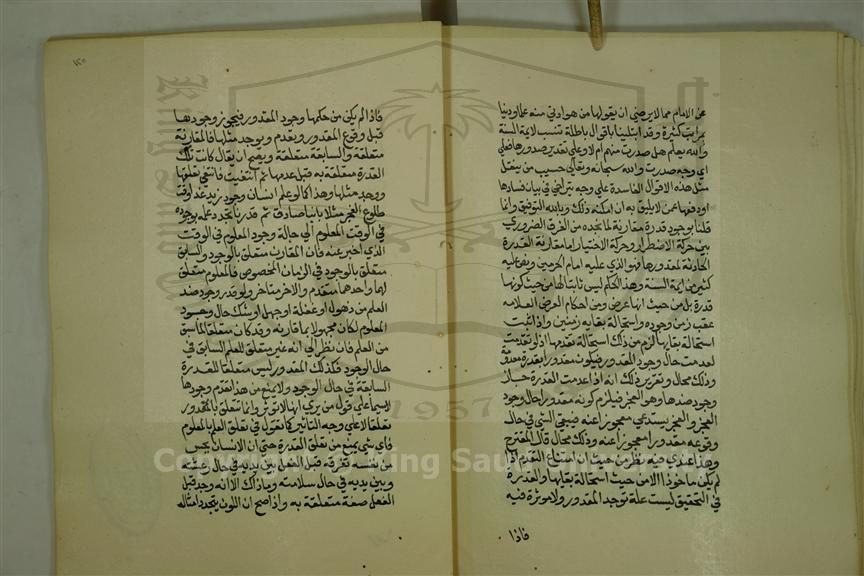 عن الامام مما لا يرضى ان يقولها من هو ادنى منه علما ودينا
بمراتب كثيرة وقد ابتلينا باقوال باطلة تنسب لايمة السنة
والله يعلم هل صدرت منهم ام لا وعلى تقدير صدورها فعلى
اي وجه صدرت والله سبحانه وتعالى حسيب من ينقل
مثل هذه الاقوال الفاسدة على وجه يتراخى في بيان فسادها
او دفعها عمن لا يليق به ان امكنه ذلك وبالله التوفيق وانما
قلنا بوجود قدرة مقارنة لما نجده من الفرق الضروري
بين حركة الاضطرار وحركة الاختيار اما مقارنة القدرة
الحادثة لمقدورها فهو الذي عليه امام الحرمين ونص عليه
كثير من ايمة السنة وهذا الحكم ليس ثابتا لها من حيث كونها
قدرة بل من حيث انها عرض ومن احكام العرض انعدامه
عقب زمن وجوده واستحالة بقايه زمنين واذا ثبت
استحالة بقايها لزم من ذلك استحالة تقدمها اذ لو تقدمت
لعدمت حال وجود المقدور فيكون مقدورا بقدرة معدومة
وذلك محال وتقرير ذلك انه اذا عدمت القدرة جاز
وجود ضدها وهو العجز فيلزم كونه مقدورا حال وجود
العجز والعجز يستدعي معجوزا عنه فيبقى الشي في حال
وقوعه مقدورا معجوزا عنه وذلك محال قال المقترح
وهذا عندي فيه نظر من حيث ان امتناع التقدم اذا
لم يكن ماخوذا الا من حيث استحالة بقايها والقدرة
في التحقيق ليست علة توجد المقدور ولا موثرة فيه
فاذا
١٢٥
فاذا لم يكن من حكمها وجود المقدور فيجوز وجودها
قبل وقوع المقدور وتعدم ويوجد مثلها فالمقارنة
متعلقة والسابقة متعلقة ويصح ان يقال كانت تلك
القدرة متعلقة به قبل عدمها ثم انتفت فانتفى تعلقها
ووجد مثلها وهذا كما لو علم انسان وجود زيد غدا وقت
طلوع الفجر مثلا بانباء صادق ثم قدرنا تجدد علمه بوجوده
في الوقت المعلوم الى حالة وجود المعلوم في الوقت
الذي اخبر عنه فان المقارن متعلق بالوجود والسابق
متعلق بالوجود في الزمان المخصوص فالمعلوم متعلق
لهما واحدهما متقدم والاخر متاخر ولو قدر وجود ضد
العلم من ذهول او غفلة او جهل او شك حال وجود
المعلوم لكان مجهولا بما قارنه وقد كان متعلقا لما سبق
من العلم فان نظر الى انه غير متعلق للعلم السابق في
حال الوجود فكذلك المقدور ليس متعلقا للقدرة
السابقة في حال الوجود ولا يمنع من هذا تقدم وجودها
لاسيما على قول من يرى انها لا تؤثر وانما تتعلق بالمقدور
تعلقا لا على وجه التاثير كما نقول في تعلق العلم بالمعلوم
فاي شي يمنع من تعلق القدرة حتى ان الانسان يحس
من نفسه تفرقة قبل الفعل بين يديه في حال رعشته
وبين يديه في حال سلامته وما ذاك الا انه وجد قبل
الفعل صفة متعلقة به واذا صح ان اللون يتجدد امثاله